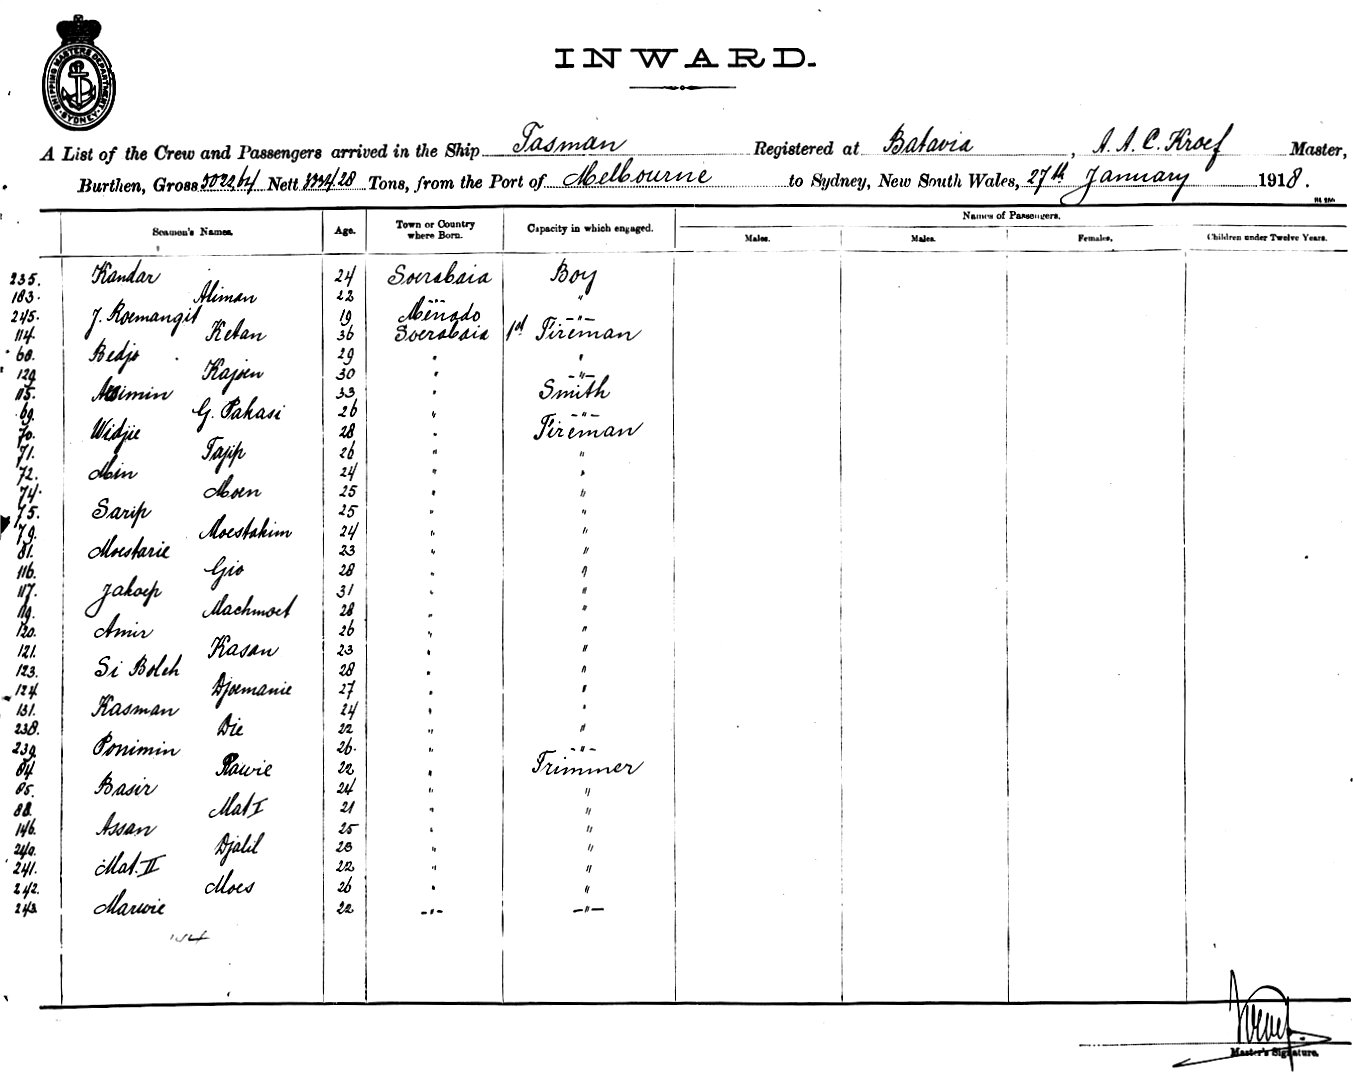 SHIPPING MASTERS DEPARTMENT SYDNEY
INWARD.
A List of the Crew and Passengers arrived in the Ship Tasman Registered at Batavia, A. A. C. Kroef Master,
Burthen, Gross 5022 64 Nett Tons, from the Port of Melbourne to Sydney, New South Wales, 27th January 1918.
Names of Passengers.
Seamen's Names. Age. Town or Country where Born. Capacity in which engaged. Males. Males. Females. Children under Twelve Years.
235. Kandar 24 Soerabaia Boy
183. Aliman 22 " "
245. J. Roemangit 19 Menado "
114. Ketan 36 Soerabaia 1st Fireman
68. Bedjo 29 " "
129. Kajoen 30 " "
115. Asimin 33 " Smith
69. G. Pakasi 26 " "
70. Widjie 28 " Fireman
71. Tajip 26 " "
72. Min 24 " "
74. Moen 25 " "
75. Sarip 25 " "
79. Moestakim 24 " "
81. Moestarie 23 " "
116. Gio 28 " "
117. Jakoep 31 " "
119. Machmoet 28 " "
120. Amir 26 " "
121. Kasan 23 " "
123. Si Boleh 28 " "
124. Djoemanie 27 " "
131. Kasman 24 " "
238. Die 22 " "
239. Ponimin 26. " "
84 Rawie 22 " Trimmer
85. Basir 24 " "
88. Mat I 21 " "
146. Assan 25 " "
240. Djalil 23 " "
241. Mat. II 22 " "
242. Moes 26 " "
243. Marwie 22 " "
Master's Signature.